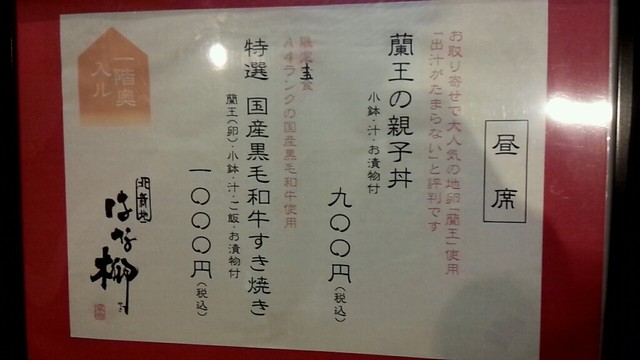 昼席
お取り寄せで大人気の地卵「蘭王」使用
「出汁がたまらない」と評判です
蘭王の親子丼
小鉢・汁・お漬物付
九〇〇円(税込)
A4ランクの国産黒毛和牛使用
特選 国産黒毛和牛すき焼き
蘭王(卵)・小鉢・汁・ご飯・お漬物付
一〇〇〇円(税込)
一階奥
入ル
北新地
はな柳